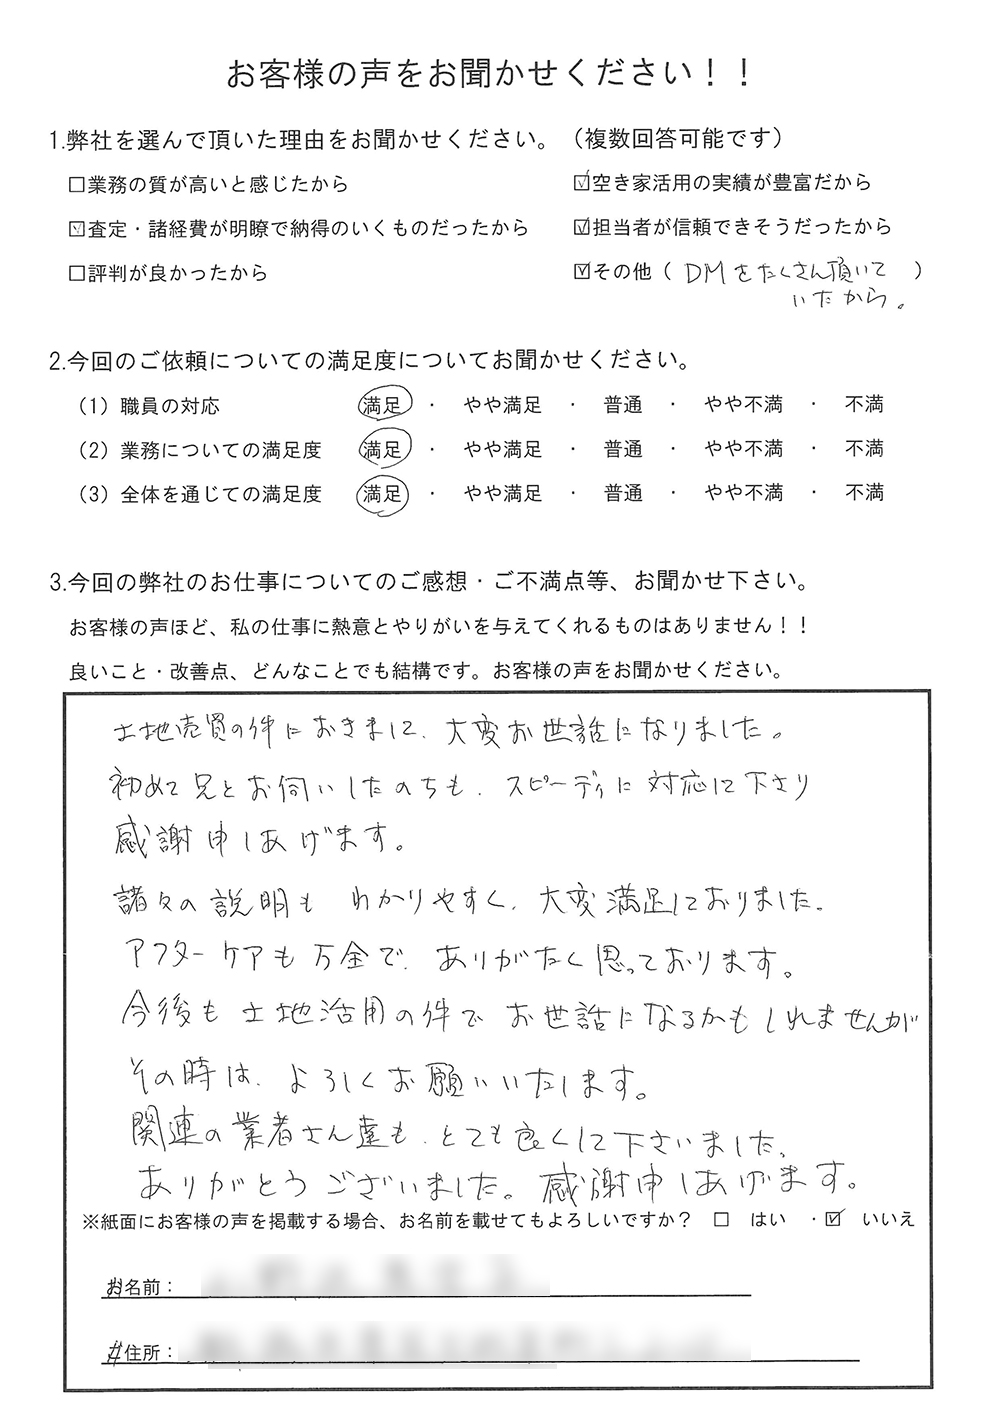 お客様の声をお聞かせください！！
1.弊社を選んで頂いた理由をお聞かせください。（複数回答可能です）
□業務の質が高いと感じたから ☑空き家活用の実績が豊富だから
☑査定・諸経費が明瞭で納得のいくものだったから ☑担当者が信頼できそうだったから
□評判が良かったから ☑その他（DMをたくさん頂いて）
いたから。
2.今回のご依頼についての満足度についてお聞かせください。
（1）職員の対応 満足 ・ やや満足 ・ 普通 ・ やや不満 ・ 不満
（2）業務についての満足度 満足 ・ やや満足 ・ 普通 ・ やや不満 ・ 不満
（3）全体を通じての満足度 満足 ・ やや満足 ・ 普通 ・ やや不満 ・ 不満
3.今回の弊社のお仕事についてのご感想・ご不満点等、お聞かせ下さい。
お客様の声ほど、私の仕事に熱意とやりがいを与えてくれるものはありません！！
良いこと・改善点、どんなことでも結構です。お客様の声をお聞かせください。
土地売買の件におきまして、大変お世話になりました。
初めて兄とお伺いしたのちも、スピーディに対応して下さり
感謝申しあげます。
諸々の説明も わかりやすく、大変満足しておりました。
アフターケアも万全で、ありがたく思っております。
今後も土地活用の件で お世話になるかもしれませんが
その時は、よろしくお願いいたします。
関連の業者さん達も、とても良くして下さいました。
ありがとうございました。感謝申しあげます。
※紙面にお客様の声を掲載する場合、お名前を載せてもよろしいですか？ □ はい ・☑ いいえ
お名前：
ご住所：